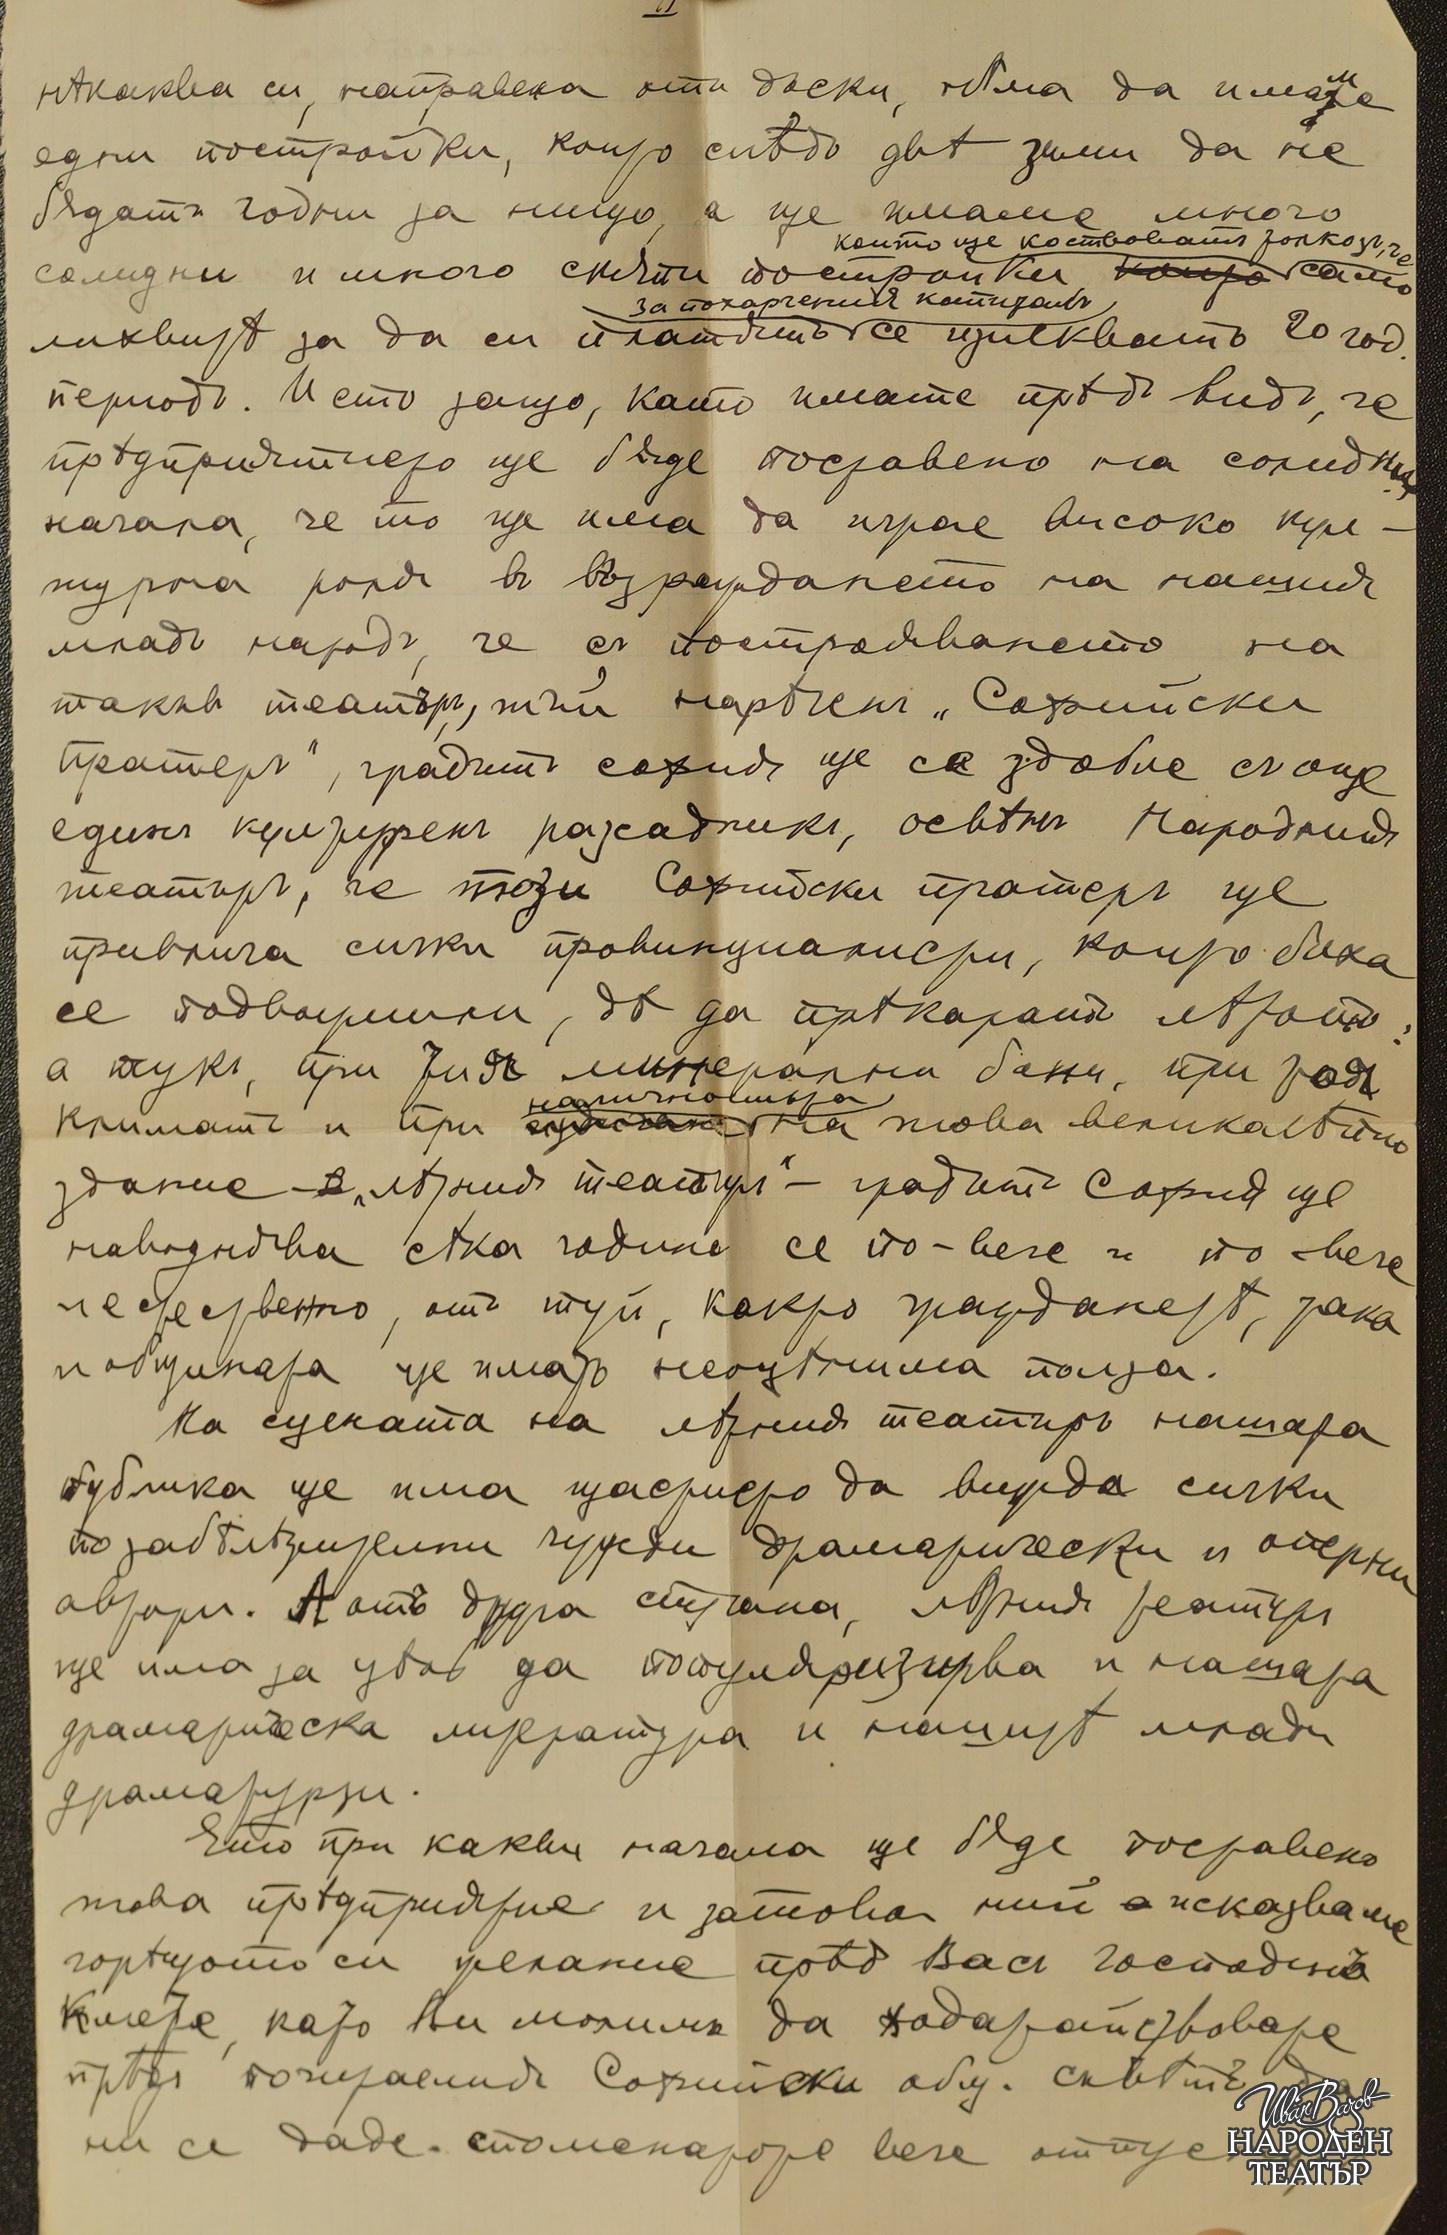 нѣкаква си, направена отъ дъски, нѣма да имаме
едни постройки, които слѣдъ двѣ зими да не
бѫдатъ годни за нищо, а ще имаме много
които ще костоватъ толкозъ, че
солидни и много скѫпи постройки които само
за похарчения капиталъ
лихвитѣ за да си платятъ се изискватъ 20 год.
периодъ. И ето защо, като имате прѣдъ видъ, че
прѣдприятието ще бѫде поставено на солидни
начала, че то ще има да играе високо кул-
турна роля въ възраждането на нашия
младъ народъ, че съ построяването на
такъв театъръ, тъй нарѣченъ „Софийски
Пратеръ", градътъ София ще се здобие съ още
единъ културенъ разсадникъ, освѣнъ Народния
театъръ, че този Софийски пратеръ ще
привлича сички провинциалисти, които биха
се подвоумили, дѣ да прѣкаратъ лѣтото;
а тукъ, при тия минерални бани, при тоя
наличностьта
климатъ и при на това великолѣпно
здание – „лѣтния театъръ" – градътъ София ще
наводнява сѣка година се по-вече и по-вече
и естественно, отъ туй, както гражданетѣ, така
и общината ще иматъ неоцѣнима полза.
На сцената на лѣтния театъръ нашата
публика ще има щастието да вижда сички
по забѣлѣжителни чужди драматически и оперни
автори. А отъ друга страна, лѣтния театъръ
ще има за цѣль да популяризирва и нашата
драматическа литература и нашитѣ млади
драматурзи.
Ето при какви начала ще бѫде поставено
това прѣдприятие и затова ний исказваме
горѣщото си желание прѣдъ Васъ господинъ
Кмете, като Ви молимъ да ходатайствовате
прѣдъ почитаемия Софийски общ. съвѣтъ да
ни се даде споменатото вече
Иван Вазов
НАРОДЕН
ТЕАТЪР